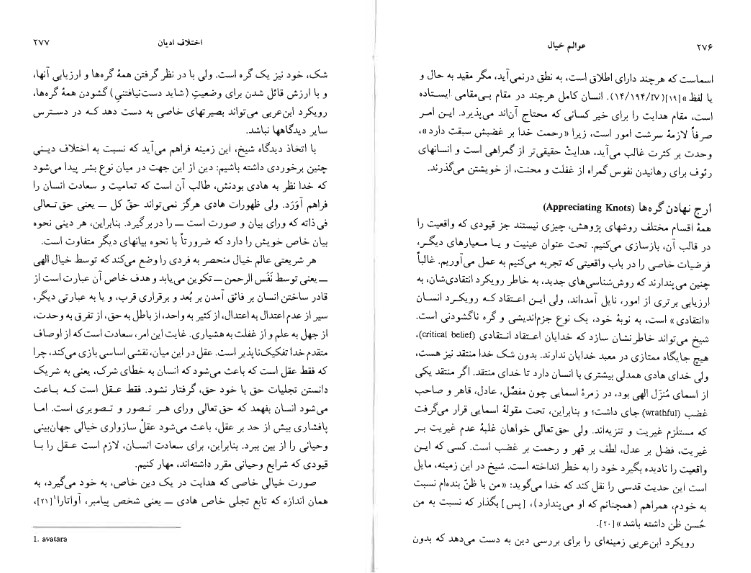 ۲۷۶
عوالم خیال
اسماست که هرچند دارای اطلاق است، به نطق درنمی‌آید، مگر مقید به حال و
یا لفظ»[۱۹](۱۴/۱۹۴/IV). انسان کامل هرچند در مقام بی‌مقامی ایستاده
است، مقام هدایت را برای خیر کسانی که محتاج آن‌اند می‌پذیرد. این امر
صرفاً لازمهٔ سرشت امور است، زیرا «رحمت خدا بر غضبش سبقت دارد»،
وحدت بر کثرت غالب می‌آید. هدایت حقیقی‌تر از گمراهی است و انسانهای
رئوف برای رهانیدن نفوس گمراه از غفلت و محنت، از خویشتن می‌گذرند.
أرج نهادن گره‌ها (Appreciating Knots)
همهٔ اقسام مختلف روشهای پژوهش، چیزی نیستند جز قیودی که واقعیت را
در قالب آن، بازسازی می‌کنیم. تحت عنوان عینیت و یا معیارهای دیگر،
فرضیات خاصی را در باب واقعیتی که تجربه می‌کنیم به عمل می‌آوریم. غالباً
چنین می‌پندارند که روش‌شناسی‌های جدید، به خاطر رویکرد انتقادی‌شان، به
ارزیابی برتری از امور، نایل آمده‌اند، ولی این اعتقاد که رویکرد انسان
«انتقادی» است، به نوبهٔ خود، یک نوع جزم‌اندیشی و گره ناگشودنی است.
شیخ می‌تواند خاطرنشان سازد که خدایان اعتقاد انتقادی (critical belief)،
هیچ جایگاه ممتازی در معبد خدایان ندارند. بدون شک خدا منتقد نیز هست،
ولی خدای هادی همدلی بیشتری با انسان دارد تا خدای منتقد. اگر منتقد یکی
از اسمای مُنزَل الهی بود، در زمرهٔ اسمایی چون مفضّل، عادل، قاهر و صاحب
غضب (wrathful) جای داشت؛ و بنابراین، تحت مقولهٔ اسمایی قرار می‌گرفت
که مستلزم غیریت و تنزیه‌اند. ولی حق‌تعالی خواهان غلبهٔ عدم غیریت بر
غیریت، فضل بر عدل، لطف بر قهر و رحمت بر غضب است. کسی که این
واقعیت را نادیده بگیرد خود را به خطر انداخته است. شیخ در این زمینه، مایل
است این حدیت قدسی را نقل کند که خدا می‌گوید: «من با ظنّ بنده‌ام نسبت
به خودم، همراهم (همچنانم که او می‌پندارد)، [پس] بگذار که نسبت به من
حُسن ظن داشته باشد»[۲۰].
رویکرد ابن‌عربی زمینه‌ای را برای بررسی دین به دست می‌دهد که بدون
اختلاف ادیان
۲۷۷
شک، خود نیز یک گره است. ولی با در نظر گرفتن همهٔ گره‌ها و ارزیابی آنها،
و با ارزش قائل شدن برای وضعیتِ (شاید دست‌نیافتنیِ) گشودن همهٔ گره‌ها،
رویکرد ابن‌عربی می‌تواند بصیرتهای خاصی به دست دهد که در دسترس
سایر دیدگاهها نباشد.
با اتخاذ دیدگاه شیخ، این زمینه فراهم می‌آید که نسبت به اختلاف دینی
چنین برخوردی داشته باشیم: دین از این جهت در میان نوع بشر پیدا می‌شود
که خدا نظر به هادی بودنش، طالب آن است که تمامیت و سعادت انسان را
فراهم آوَرَد. ولی ظهورات هادی هرگز نمی‌تواند حقّ کل ـــ یعنی حق‌تعالی
فی‌ذاته که ورای بیان و صورت است ـــ را دربرگیرد. بنابراین، هر دینی نحوه
بیان خاص خویش را دارد که ضرورتاً با نحوه بیانهای دیگر متفاوت است.
هر شریعتی عالم خیال منحصر به فردی را وضع می‌کند که توسط خیال الهی
ـــ یعنی توسط نَفَس الرحمن ـــ تکوین می‌یابد و هدف خاص آن عبارت است از
قادر ساختن انسان بر فائق آمدن بر بُعد و برقراری قرب، و یا به عبارتی دیگر،
سیر از عدم اعتدال به اعتدال، از کثیر به واحد، از باطل به حق، از تفرق به وحدت،
از جهل به علم و از غفلت به هشیاری. غایت این امر، سعادت است که از اوصاف
متقدم خدا تفکیک‌ناپذیر است. عقل در این میان، نقشی اساسی بازی می‌کند، چرا
که فقط عقل است که باعث می‌شود که انسان به خطای شرک، یعنی به شریک
دانستن تجلیات حق با خود حق، گرفتار نشود. فقط عقل است که باعث
می‌شود انسان بفهمد که حق‌تعالی ورای هر تصور و تصویری است. اما
پافشاری بیش از حد بر عقل، باعث می‌شود عقلْ سازواری خیالی جهان‌بینی
وحیانی را از بین ببرد. بنابراین، برای سعادت انسان، لازم است عقل را با
قیودی که شرایع وحیانی مقرر داشته‌اند، مهار کنیم.
صورت خیالی خاصی که هدایت در یک دین خاص، به خود می‌گیرد، به
همان اندازه که تابع تجلی خاص هادی ـــ یعنی شخص پیامبر، آواتارا¹[۲۱]،
1. avatara